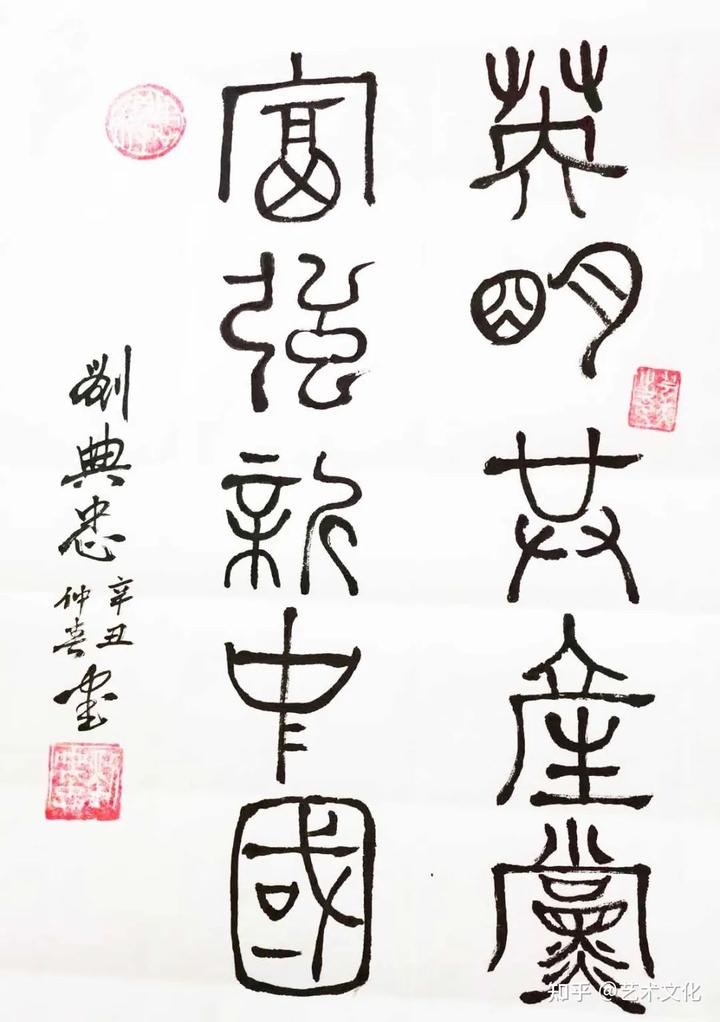 英明共產黨
富強新中國
辛丑仲春
劉典忠書
知乎 @艺术文化